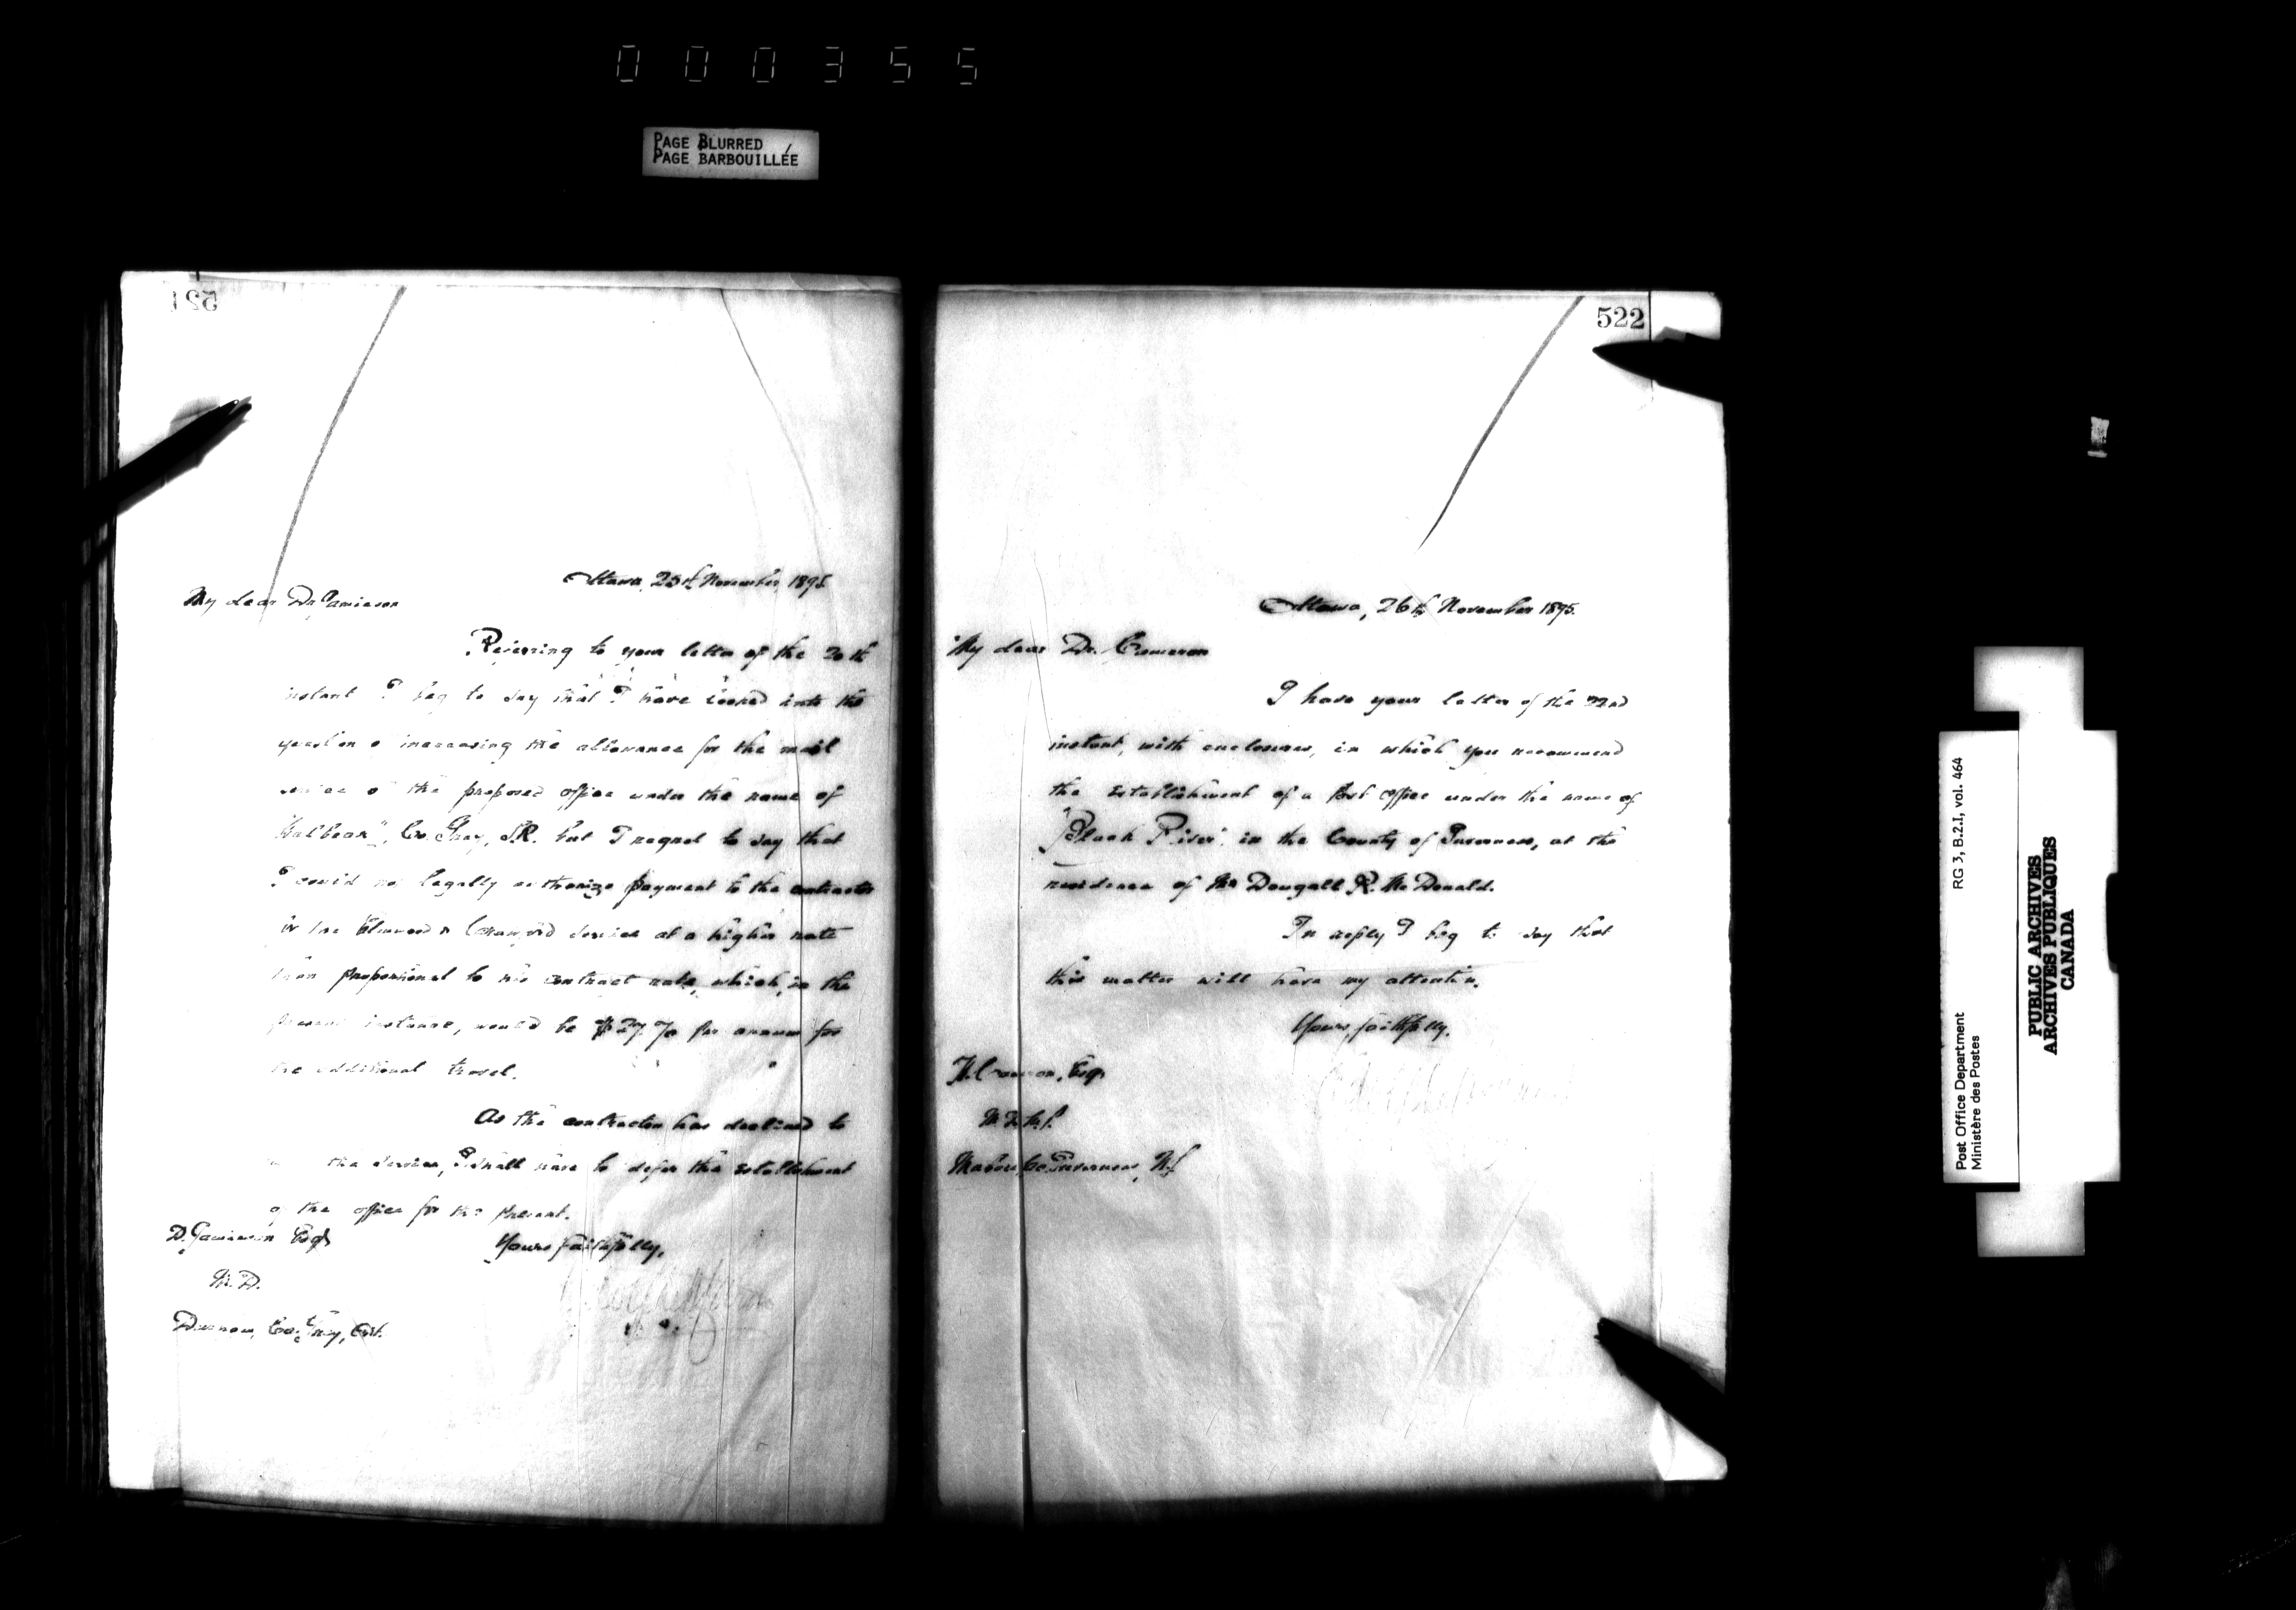 000355
PAGE BLURRED
PAGE BARBOUILLÉE
521
Ottawa, 25th November, 1895.
My dear Dr. Jamieson
Referring to your letter of the 20th
instant I beg to say that I have looked into the
question of increasing the allowance for the mail
service of the proposed office under the name of
Co. Grey, S.R. but I regret to say that
I could not legally authorize payment to the contractor
for the Elmwood & Crawford service at a higher rate
than proportional to his contract rate, which, in the
present instance, would be $27.70 per annum for
the additional travel.
As the contractor has declined to
the service, I shall have to defer the establishment
of the office for the present.
Yours faithfully,
D. Jamieson Esq.
M.D.
Durham, Co. Grey, Ont.
522
Ottawa, 26th November 1895.
My dear Dr. Cameron
I have your letter of the 22nd
instant, with enclosures, in which you recommend
the establishment of a Post Office under the name of
"Black River" in the County of Inverness, at the
residence of Mr Dougall R. McDonald.
In reply I beg to say that
this matter will have my attention.
Yours faithfully,
H. Cameron, Esq.
Mabou, Co. Inverness, N.S.
Post Office Department
Ministère des Postes
RG 3, B.2.I, vol. 464
PUBLIC ARCHIVES
ARCHIVES PUBLIQUES
CANADA